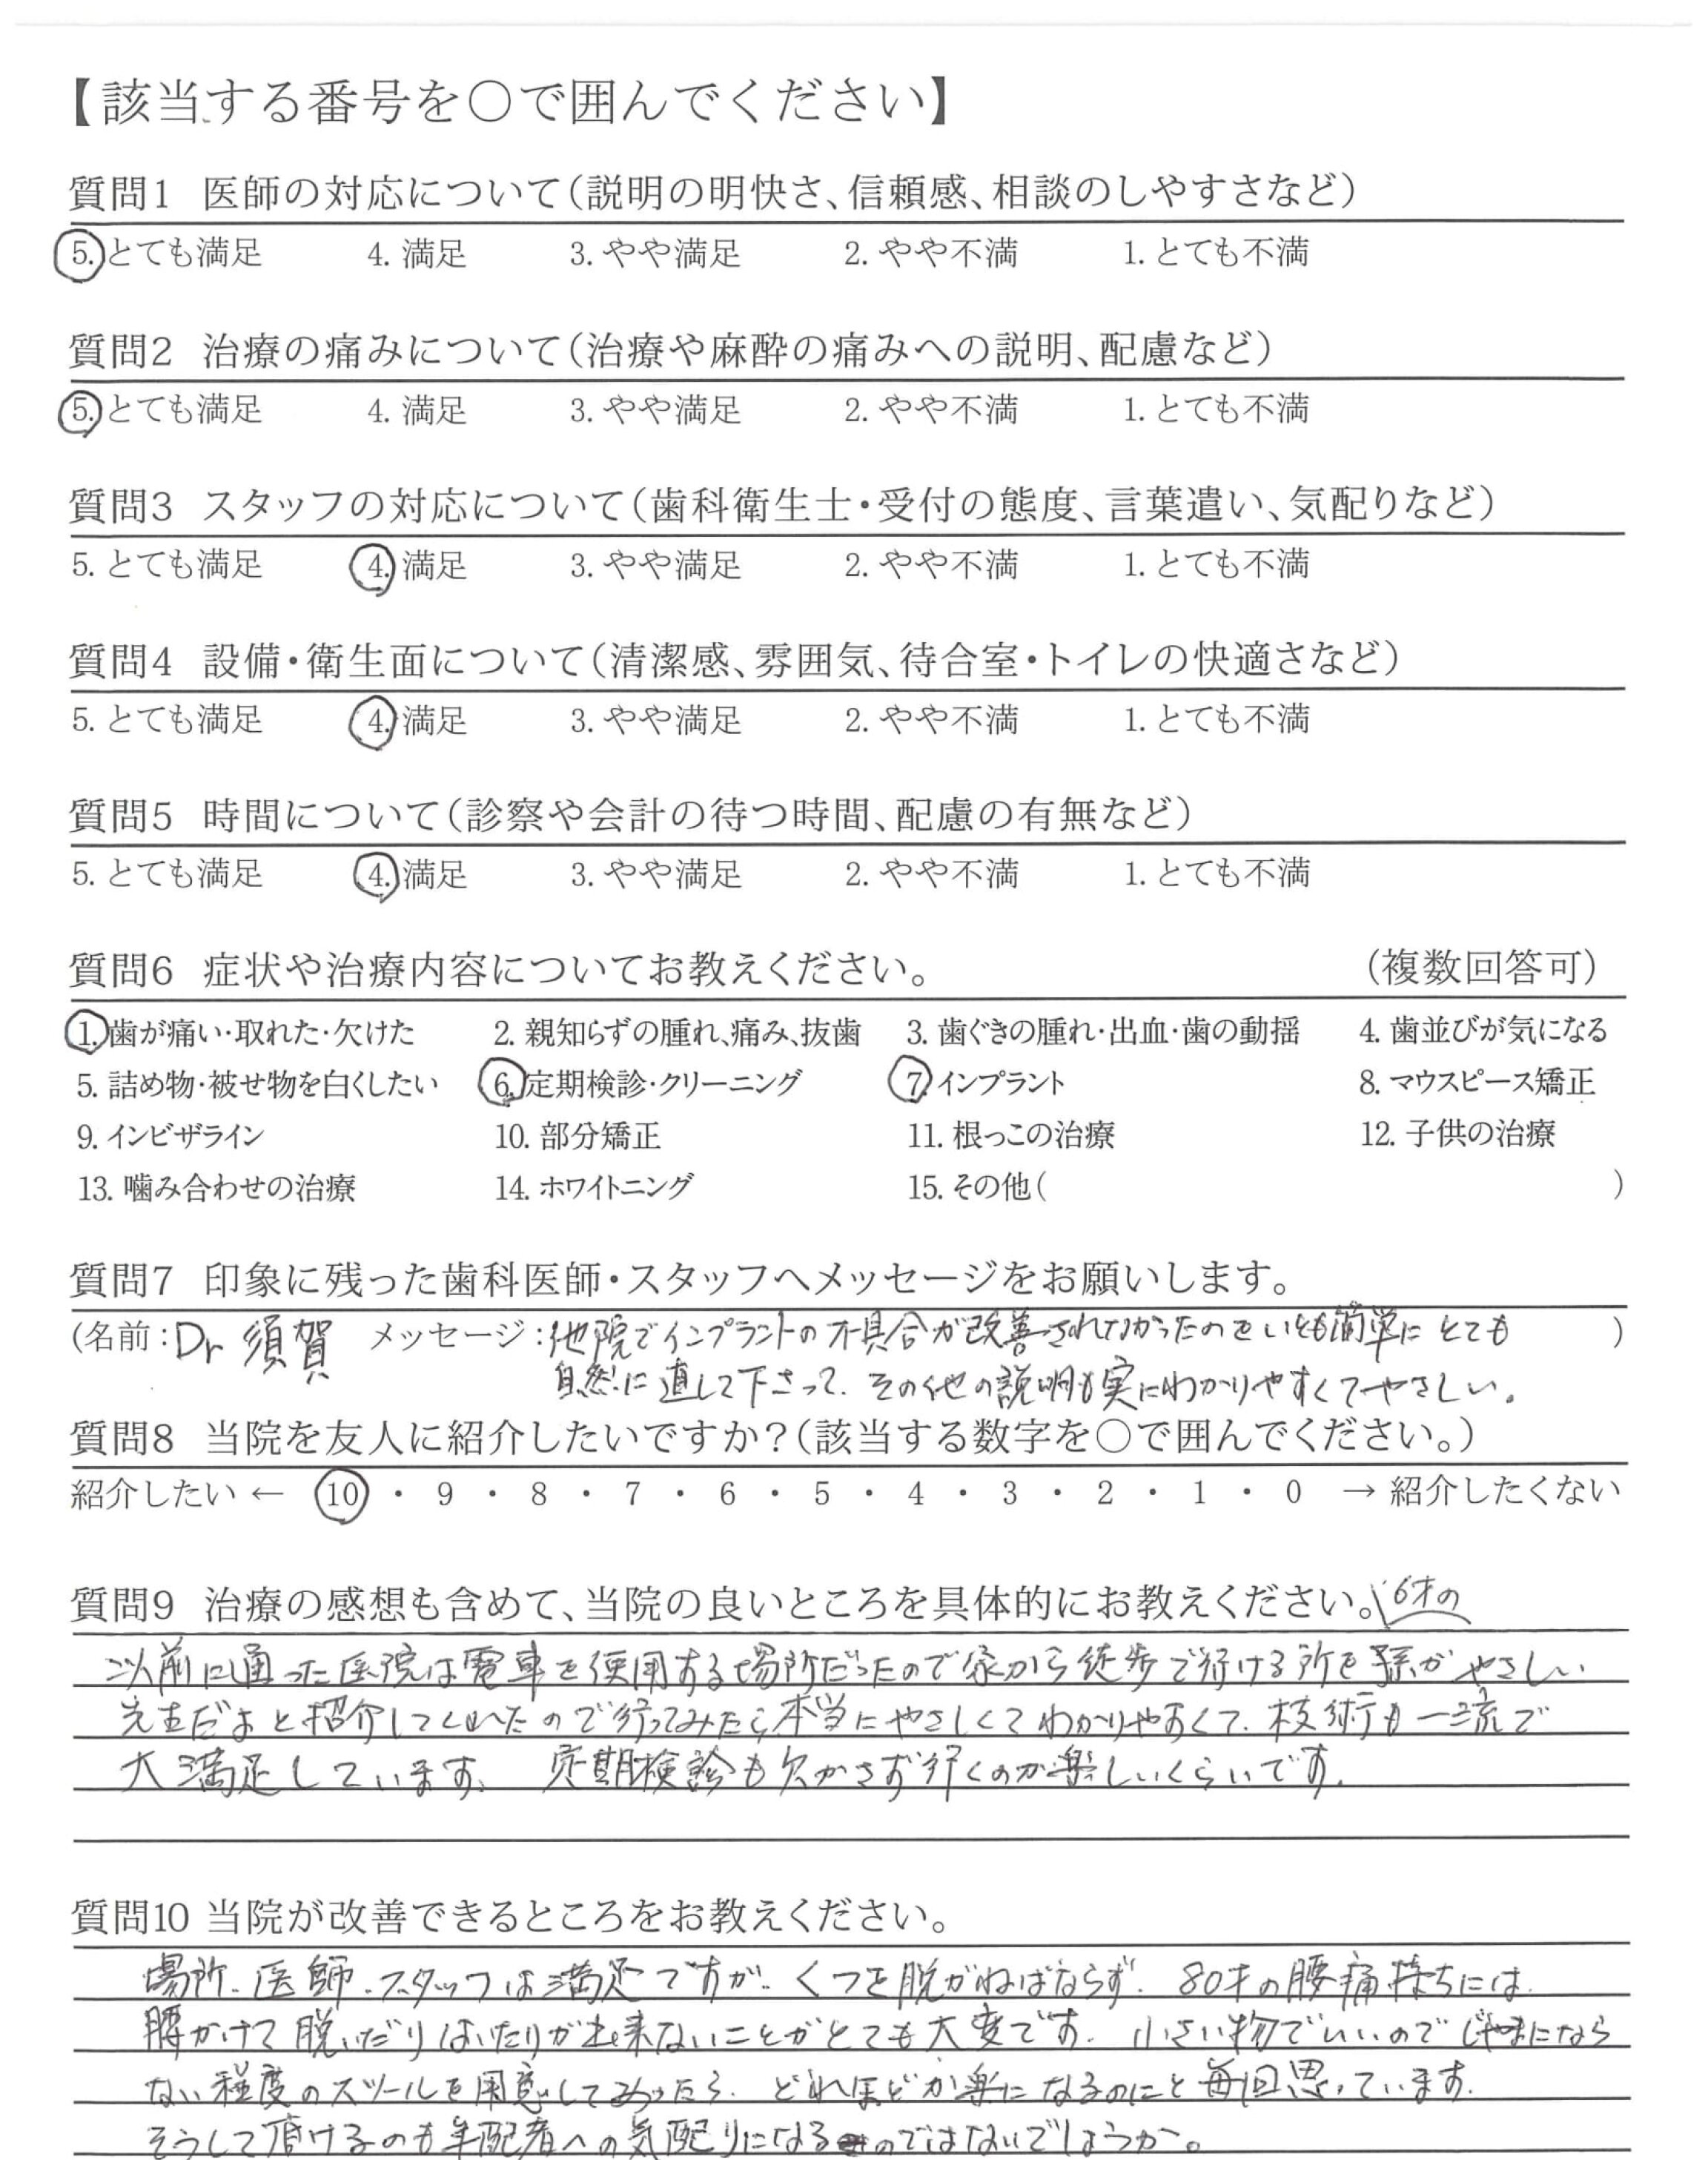 【該当する番号を〇で囲んでください】
質問1 医師の対応について(説明の明快さ、信頼感、相談のしやすさなど)
5. とても満足 4. 満足 3. やや満足 2. やや不満 1. とても不満
質問2 治療の痛みについて(治療や麻酔の痛みへの説明、配慮など)
5. とても満足 4. 満足 3. やや満足 2. やや不満 1. とても不満
質問3 スタッフの対応について(歯科衛生士・受付の態度、言葉遣い、気配りなど)
5. とても満足 4. 満足 3. やや満足 2. やや不満 1. とても不満
質問4 設備・衛生面について(清潔感、雰囲気、待合室・トイレの快適さなど)
5. とても満足 4. 満足 3. やや満足 2. やや不満 1. とても不満
質問5 時間について(診察や会計の待つ時間、配慮の有無など)
5. とても満足 4. 満足 3. やや満足 2. やや不満 1. とても不満
質問6 症状や治療内容についてお教えください。 (複数回答可)
1. 歯が痛い・取れた・欠けた 2. 親知らずの腫れ、痛み、抜歯 3. 歯ぐきの腫れ・出血・歯の動揺 4. 歯並びが気になる
5. 詰め物・被せ物を白くしたい 6. 定期検診・クリーニング 7. インプラント 8. マウスピース矯正
9. インビザライン 10. 部分矯正 11. 根っこの治療 12. 子供の治療
13. 噛み合わせの治療 14. ホワイトニング 15. その他( )
質問7 印象に残った歯科医師・スタッフへメッセージをお願いします。
(名前:Dr 須賀 メッセージ:他院でインプラントの不具合が改善されなかったのをいとも簡単に とても )
自然に直して下さって、その他の説明も実にわかりやすくてやさしい。
質問8 当院を友人に紹介したいですか?(該当する数字を〇で囲んでください。)
紹介したい ← 10 ・ 9 ・ 8 ・ 7 ・ 6 ・ 5 ・ 4 ・ 3 ・ 2 ・ 1 ・ 0 → 紹介したくない
質問9 治療の感想も含めて、当院の良いところを具体的にお教えください。
6才の
以前に通った医院は電車を使用する場所だったので家から徒歩で行ける所を孫がやさしい
先生だよと紹介してくれたので行ってみたら本当にやさしくてわかりやすくて、技術も一流で
大満足しています。 定期検診も欠かさず行くのが楽しいくらいです。
質問10 当院が改善できるところをお教えください。
場所、医師、スタッフは満足ですが、くつを脱がねばならず、80才の腰痛持ちには、
腰かけて脱いだりはいたりが出来ないことがとても大変です。小さい物でいいのでじゃまになら
ない程度のスツールを用意してあったら、どれほどか楽になるのにと毎回思っています。
そうして頂けるのも年配者への気配りになるのではないでしょうか。